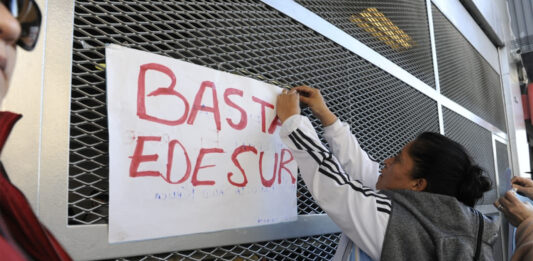 BASTA
EDESUR